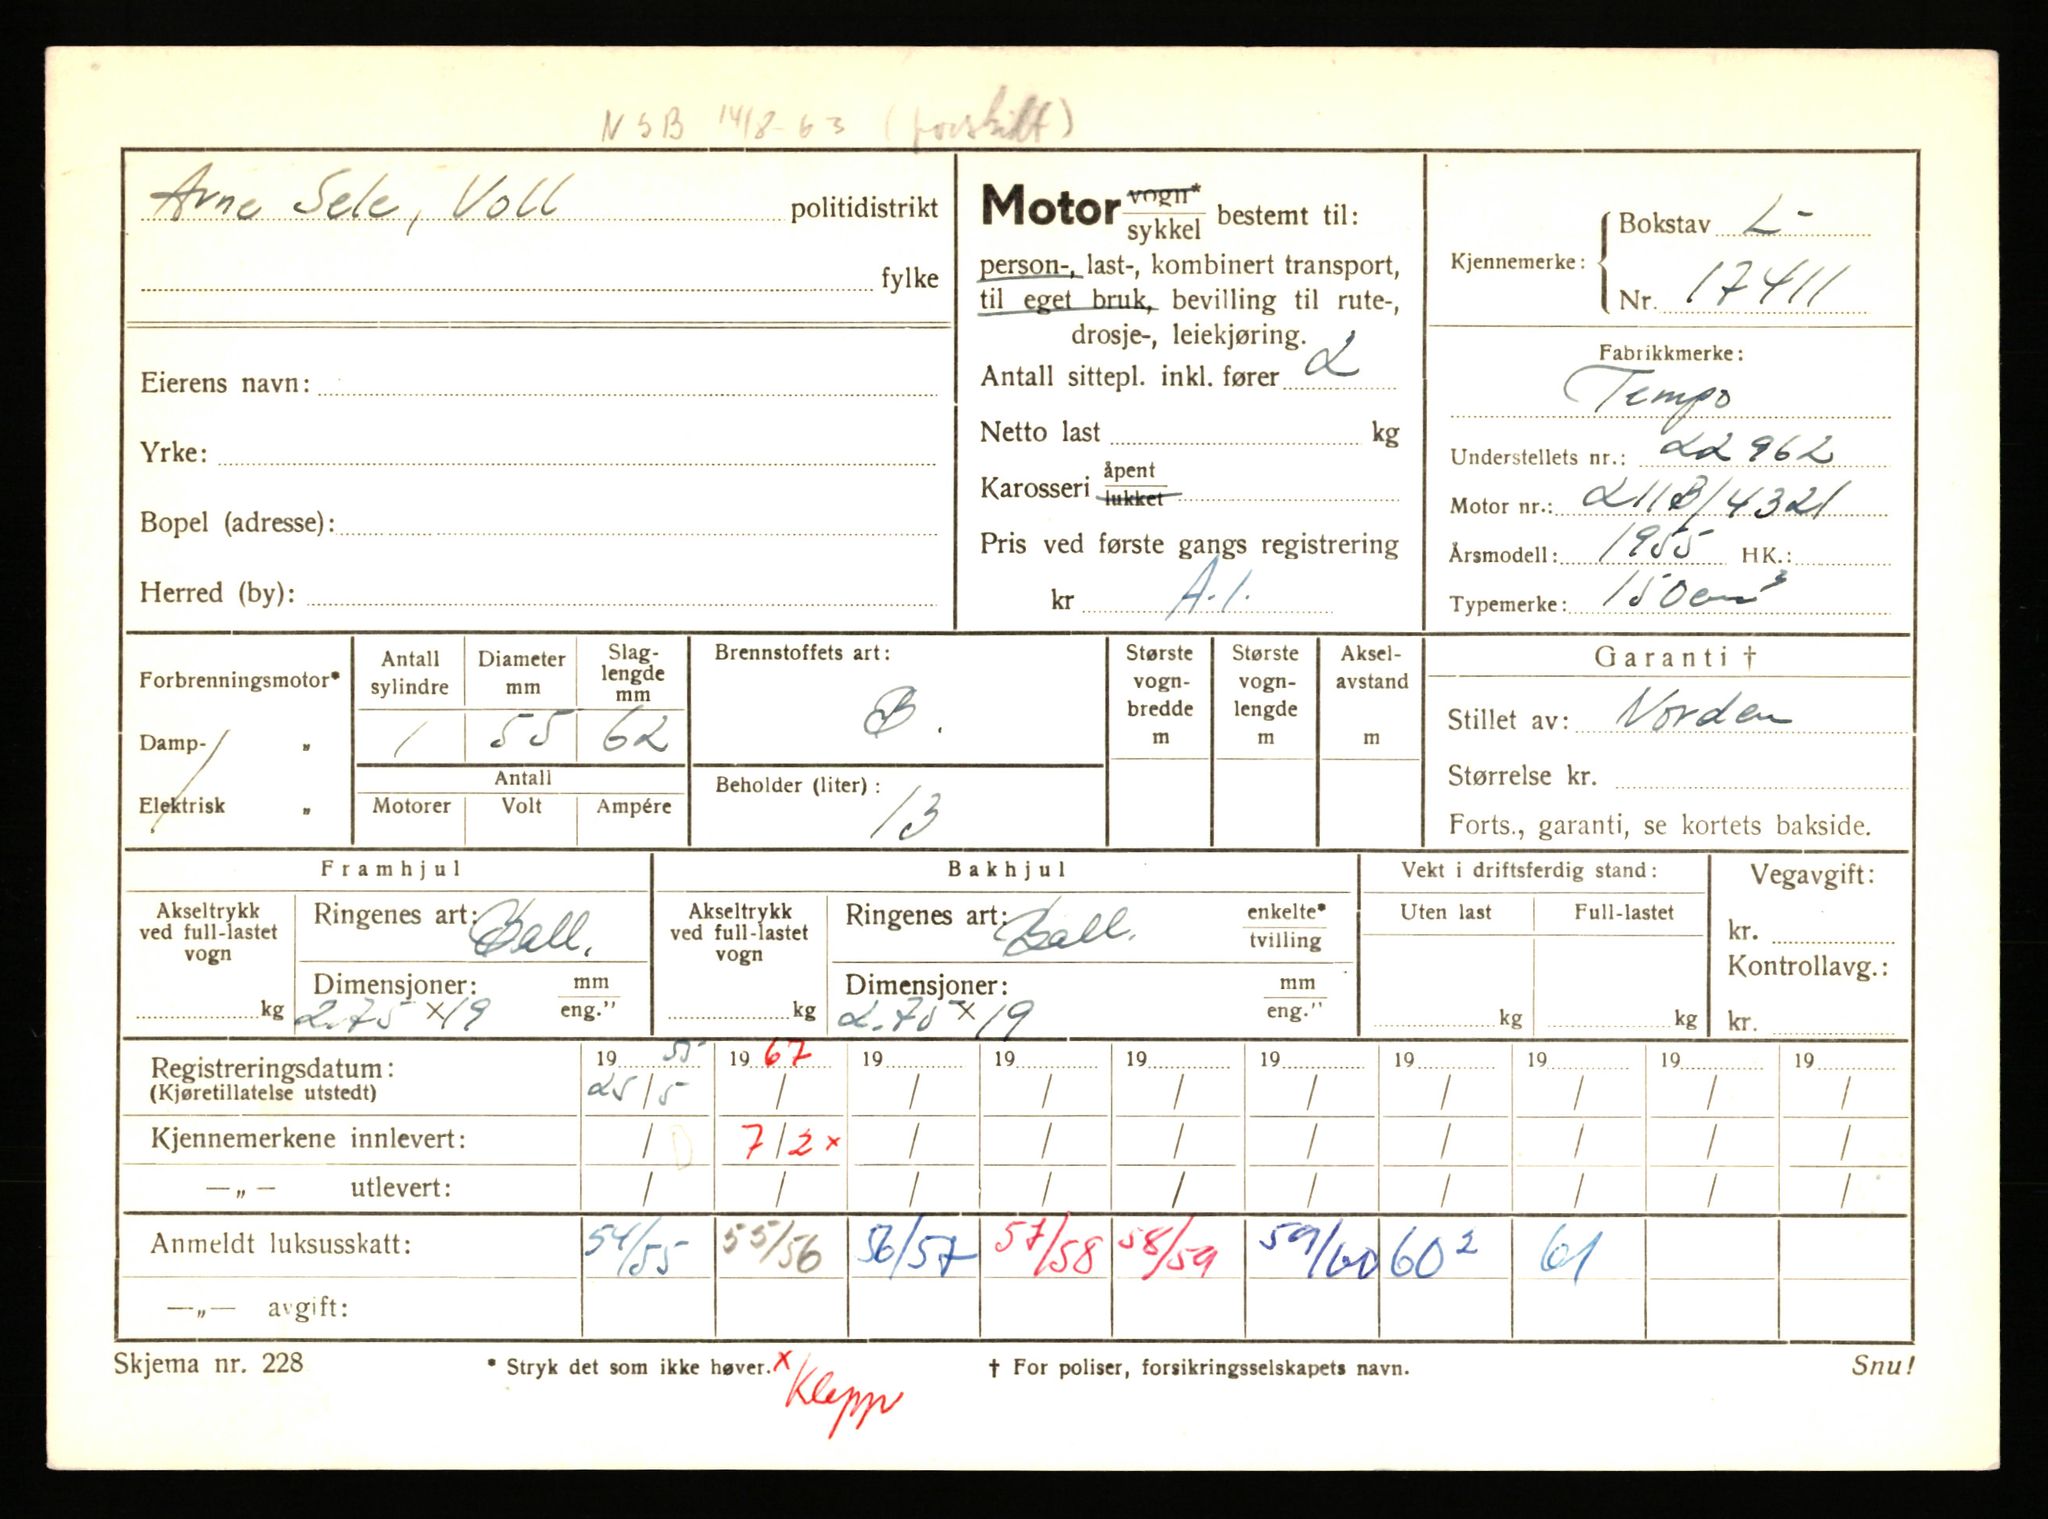 NSB 14/8-63 (forskilt)
Arne Sele, Voll politidistrikt
fylke
Eierens navn:
Yrke:
Bopel (adresse):
Herred (by):
Motor vogn* sykkel bestemt til:
person-, last-, kombinert transport,
til eget bruk, bevilling til rute-,
drosje-, leiekjøring.
Antall sittepl. inkl. fører 2
Netto last kg
Karosseri åpent lukket
Pris ved første gangs registrering
kr A.1.
Kjennemerke: Bokstav L-
Nr. 17411
Fabrikkmerke:
Tempo
Understellets nr.: 22962
Motor nr.: 211B/4321
Årsmodell: 1955 HK.:
Typemerke: 150 cm³
Forbrenningsmotor*
Damp- "
Elektrisk "
Antall sylindre Diameter mm Slag-lengde mm
1 55 62
Antall
Motorer Volt Ampére
Brennstoffets art:
B.
Beholder (liter):
13
Største vogn-bredde m
Største vogn-lengde m
Aksel-avstand m
Garanti †
Stillet av: Norden
Størrelse kr.
Forts., garanti, se kortets bakside.
Framhjul
Akseltrykk ved full-lastet vogn
kg
Ringenes art: Ball.
Dimensjoner: mm eng."
2.75 x 19
Bakhjul
Akseltrykk ved full-lastet vogn
kg
Ringenes art: Ball. enkelte* tvilling
Dimensjoner: mm eng."
2.75 x 19
Vekt i driftsferdig stand:
Uten last Full-lastet
kg kg
Vegavgift:
kr.
Kontrollavg.:
kr.
Registreringsdatum: 19 55 19 67 19 19 19 19 19 19 19 19
(Kjøretillatelse utstedt) 25/5 / / / / / / / / /
Kjennemerkene innlevert: / 7/2 x / / / / / / / /
—„— utlevert: / / / / / / / / / /
Anmeldt luksusskatt: 54/55 55/56 56/57 57/58 58/59 59/60 60² 61
—„— avgift:
Skjema nr. 228 * Stryk det som ikke høver. x Klepp † For poliser, forsikringsselskapets navn. Snu!